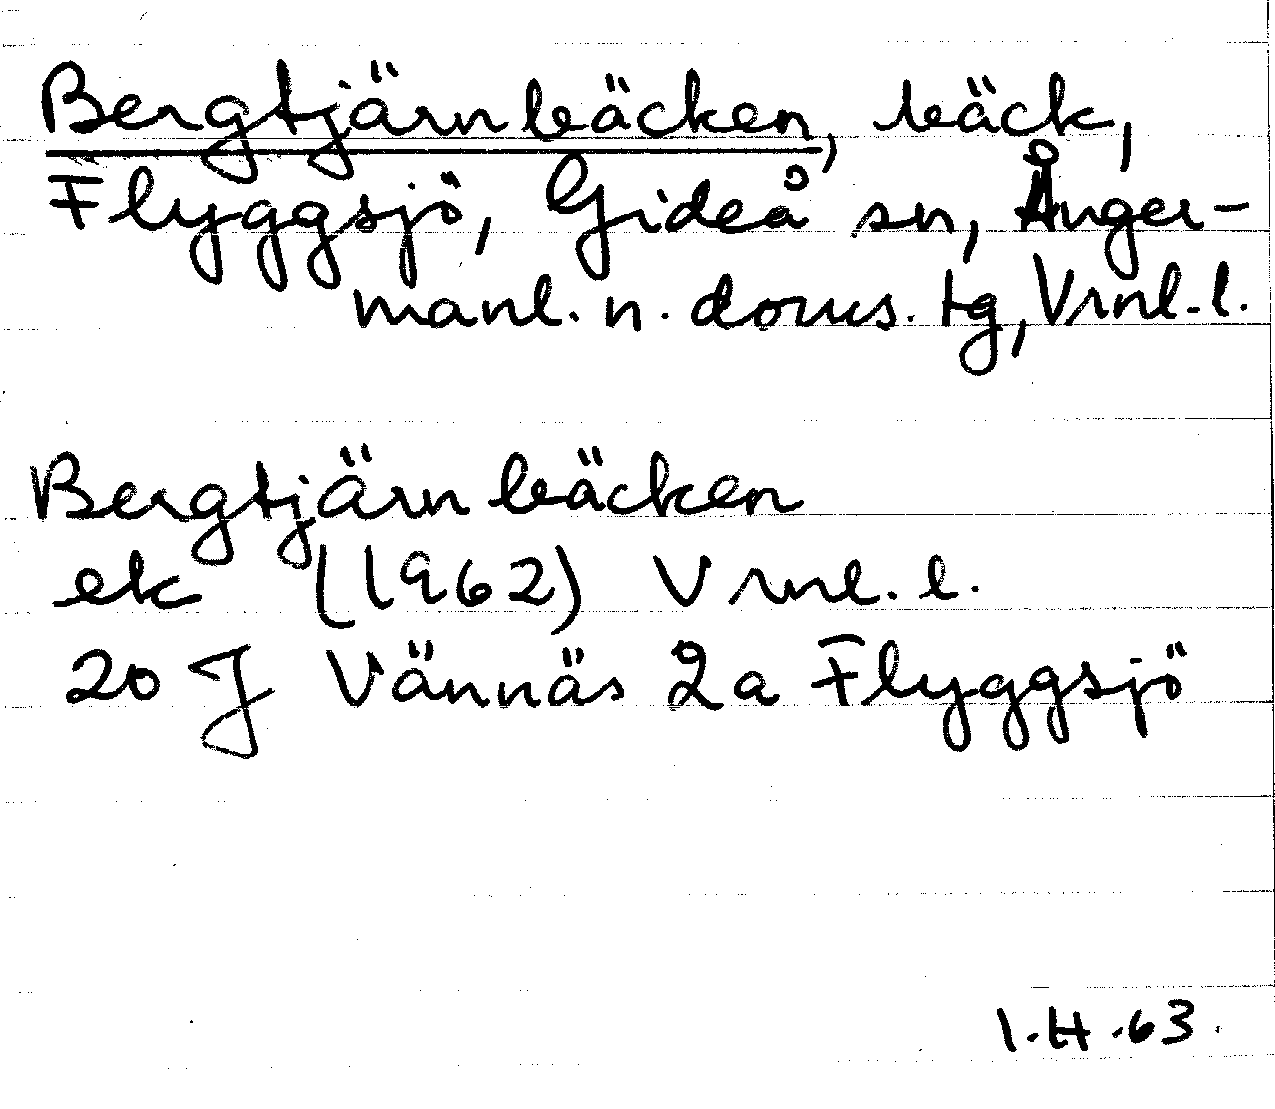 Bergtjärnbäcken, bäck,
Flyggsjö, Gideå sn, Ånger-
manl. n. doms. tg, Vrnl. l.
Bergtjärnbäcken
ek (1962) Vrnl. l.
20 J Vännäs 2a Flyggsjö
I.H.63.